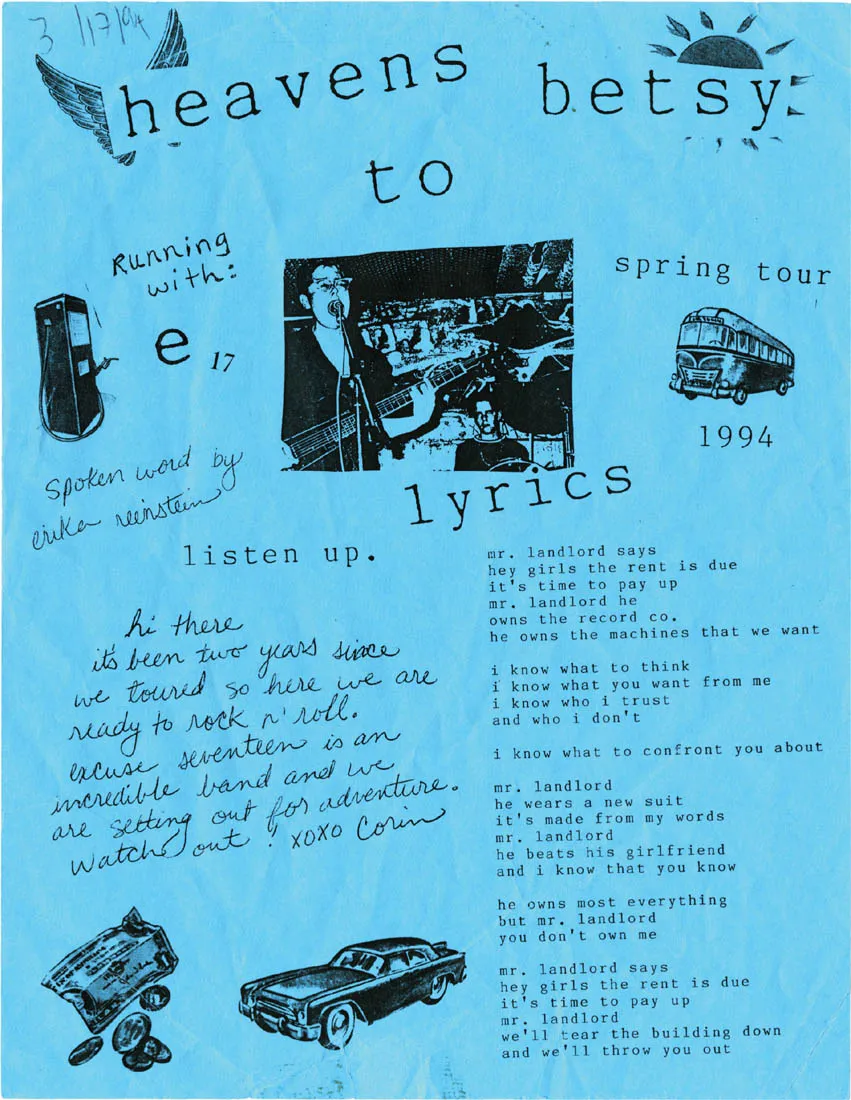 3/17/94
heavens
to
betsy
Running
with:
e 17
spoken word by
erika reinstein
spring tour
1994
lyrics
listen up.
hi there
its been two years since
we toured so here we are
ready to rock n' roll.
excuse seventeen is an
incredible band and we
are setting out for adventure.
Watch out! xoxo Corin
mr. landlord says
hey girls the rent is due
it's time to pay up
mr. landlord he
owns the record co.
he owns the machines that we want
i know what to think
i know what you want from me
i know who i trust
and who i don't
i know what to confront you about
mr. landlord
he wears a new suit
it's made from my words
mr. landlord
he beats his girlfriend
and i know that you know
he owns most everything
but mr. landlord
you don't own me
mr. landlord says
hey girls the rent is due
it's time to pay up
mr. landlord
we'll tear the building down
and we'll throw you out